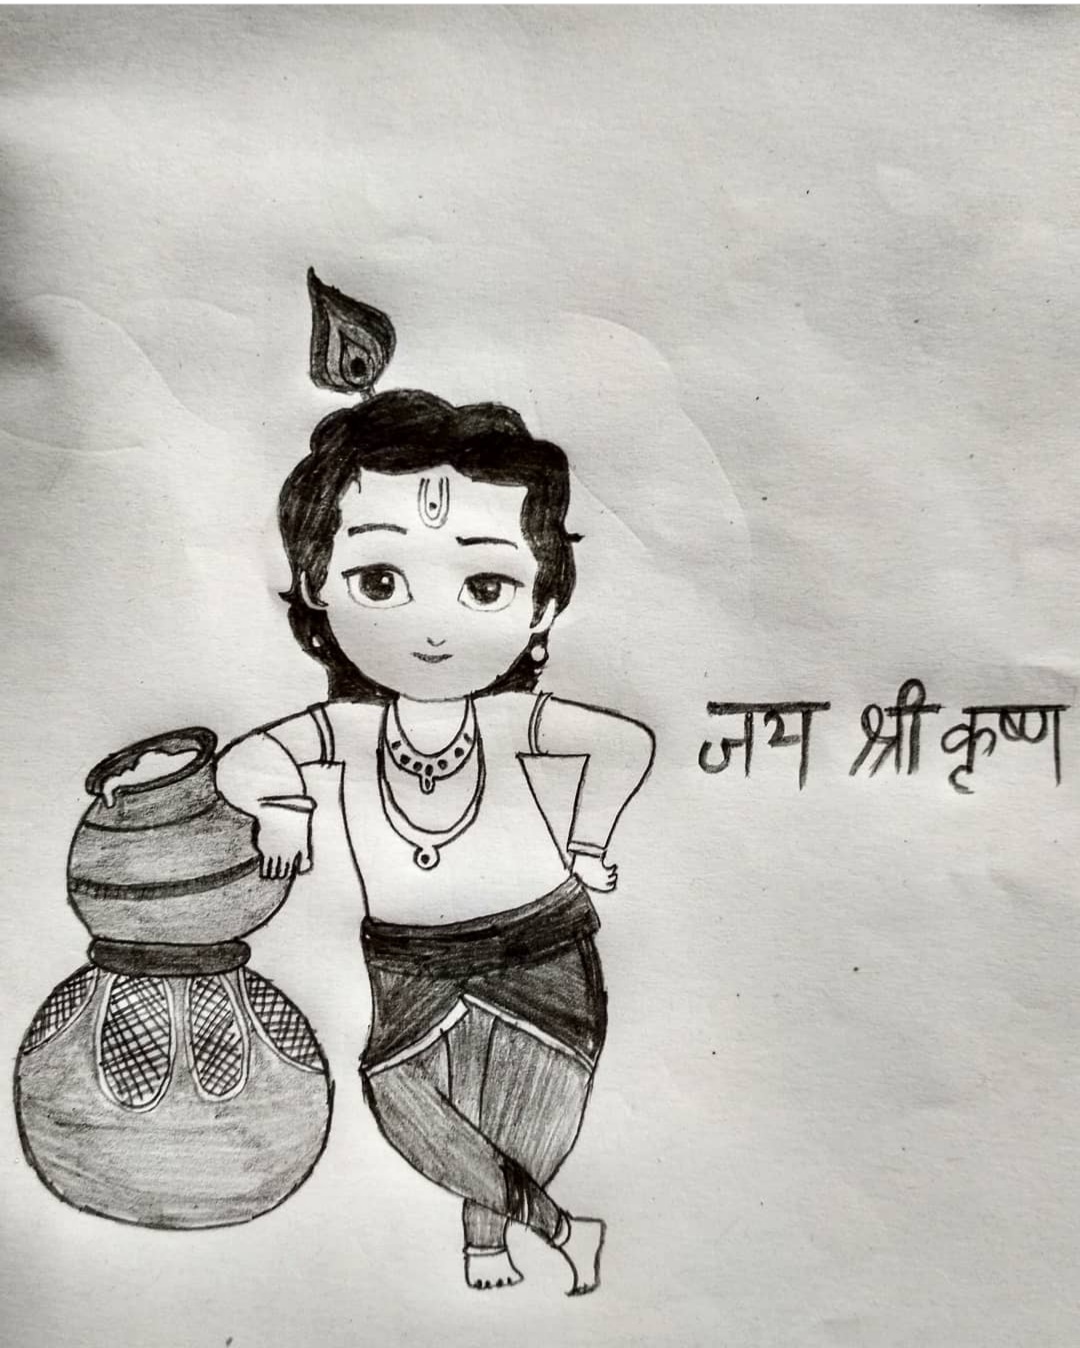 जय श्री कृष्ण